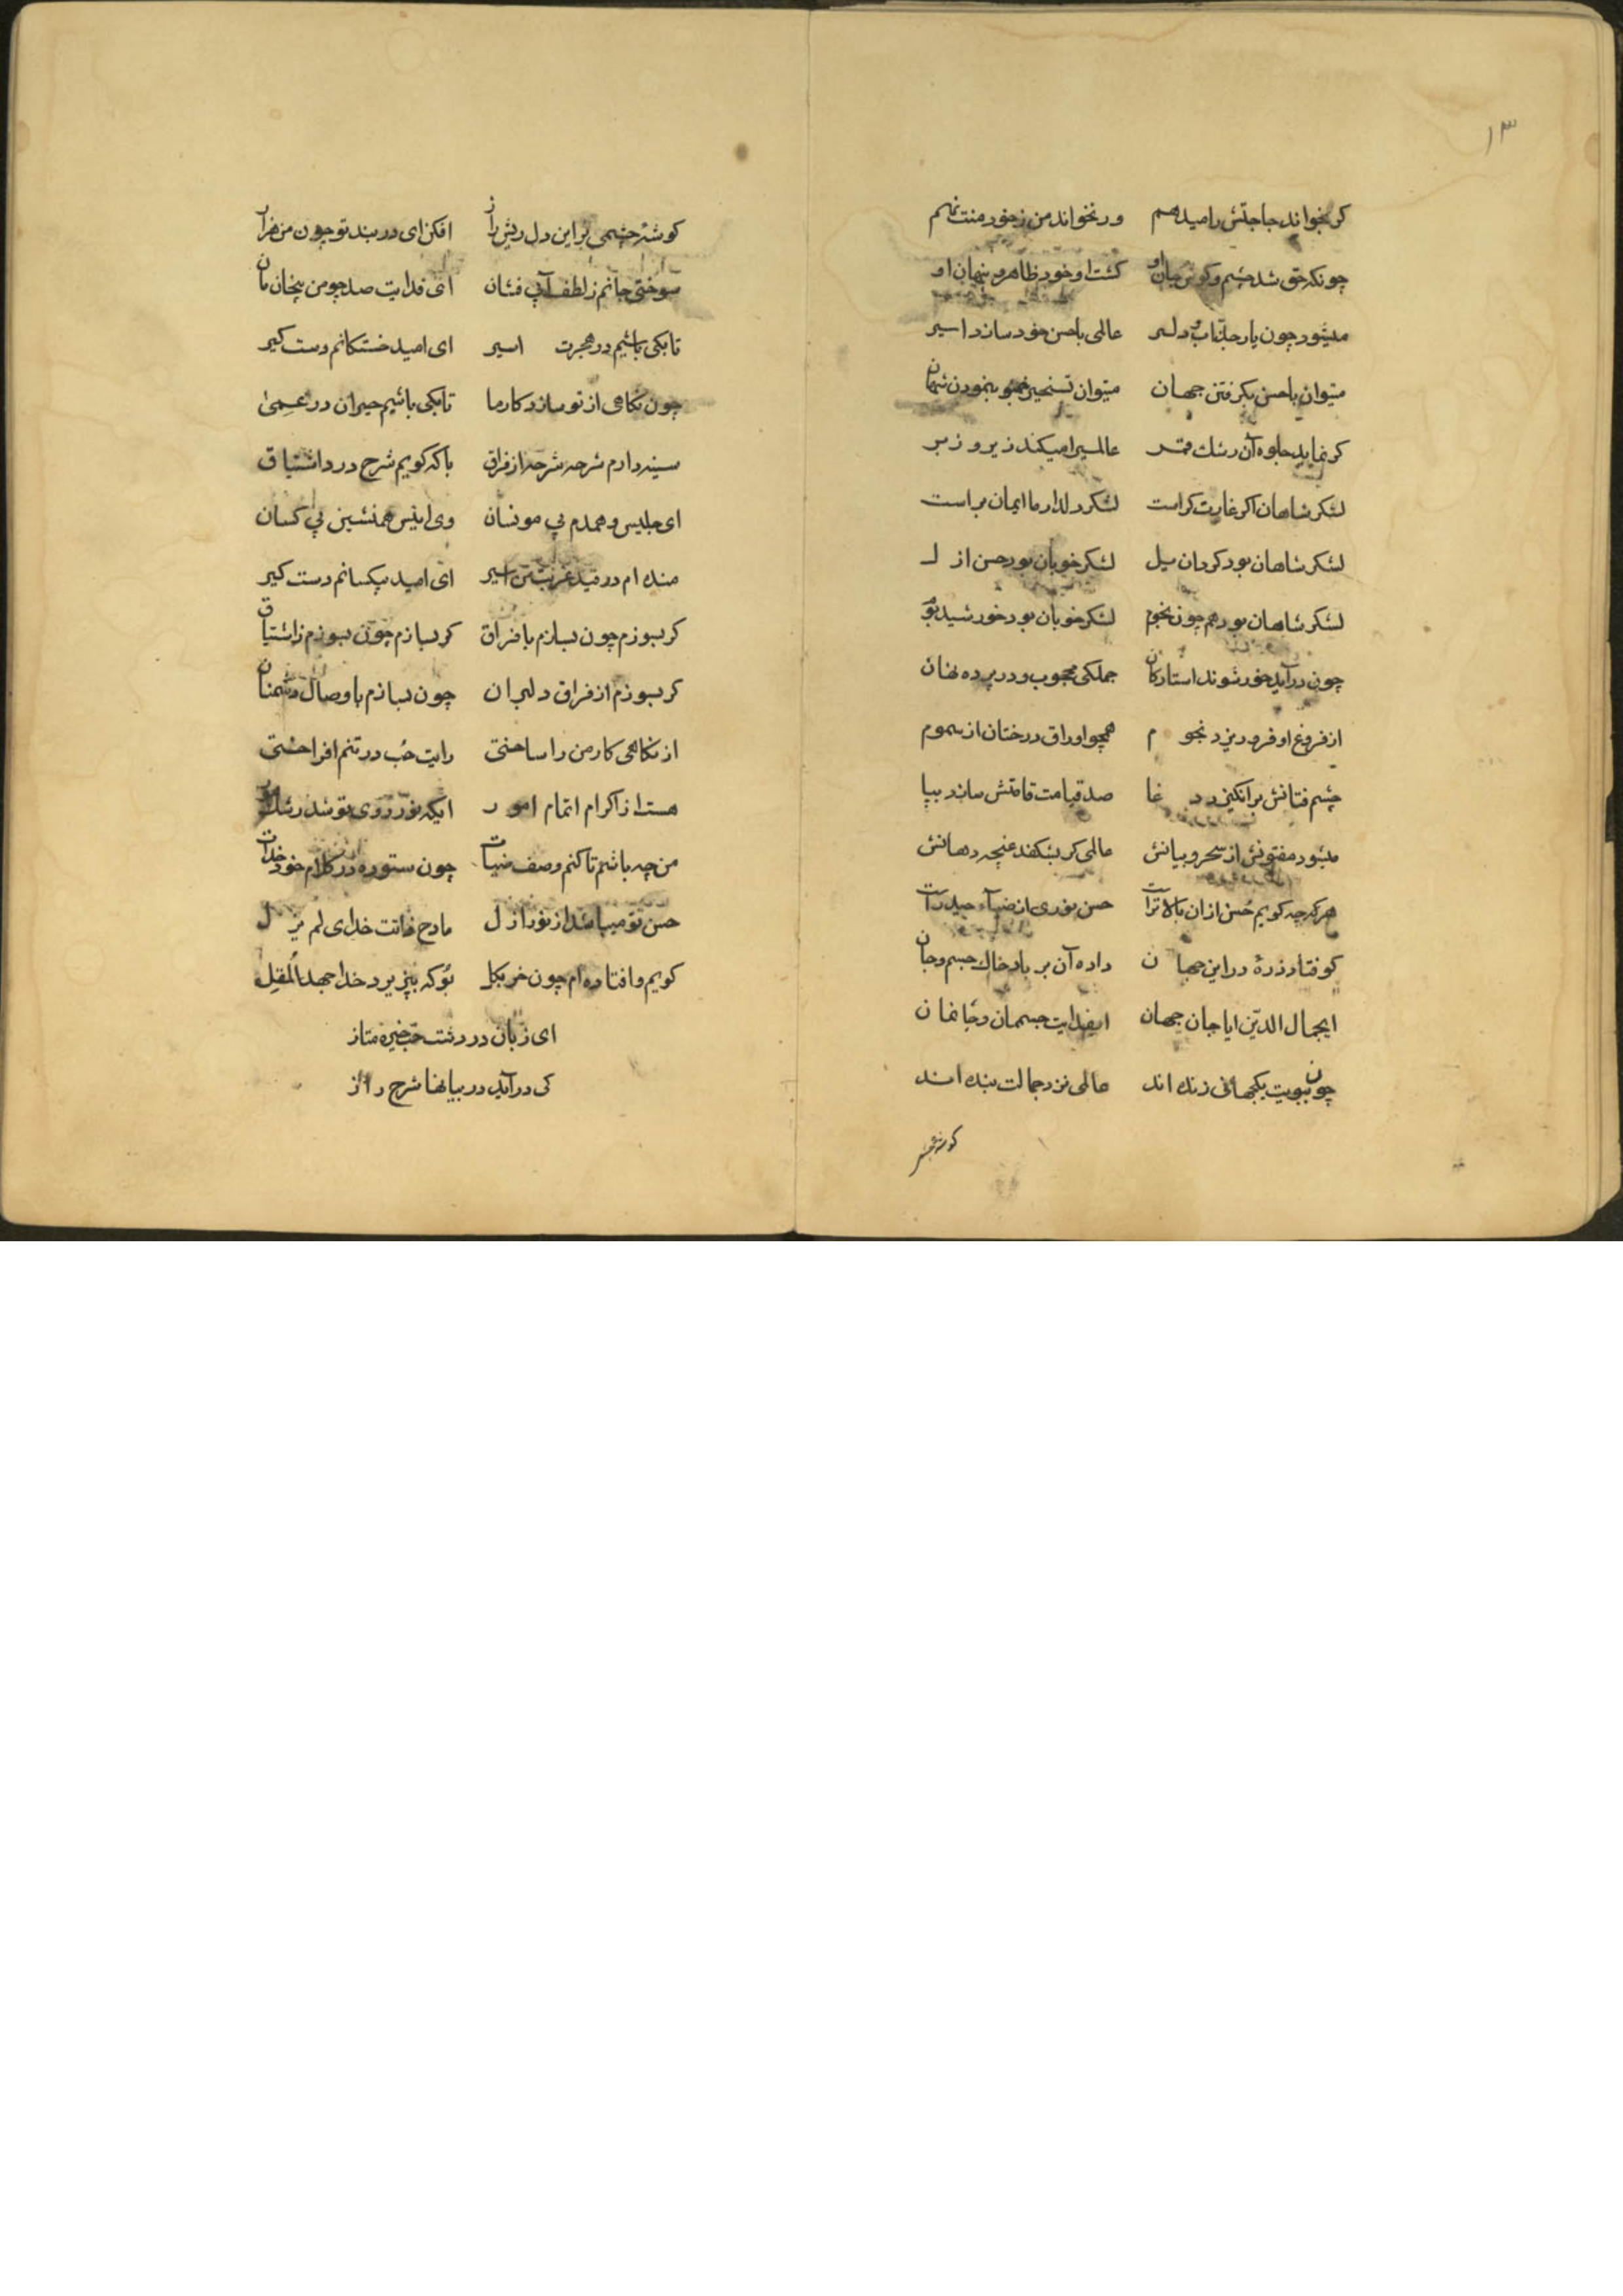 ۱۳
کر بخواند حاجتش را میدهم ور نخواند من زخود منت نهم
چونکه حق شد چشم و کوش جان او کشت او خود ظاهر و پنهان او
میشود چون یار جذاب دلیر عالمی با حسن خود سازد اسیر
میتوان با حسن بکرفتن جهان میتوان تسخیر بنمودن شهان
کر نماید جلوه آن رشك قمر عالمیرا میکند زیر و زبر
لشکر شاهان اکر غارت کراست لشکر دلدار ما ایمان براست
لشکر شاهان بود کردان یل لشکر خوبان بود حسن ازل
لشکر شاهان بود هم چون نجوم لشکر خوبان بود خورشید
چون درآید خور شوند استارکان جملکی محجوب و در پرده نهان
از فروغ او فرو ریزد نجوم همچو اوراق درختان از سموم
چشم فتانش برانکیزد دغا صد قیامت قامتش سازد بپا
میشود مفتونش از سحر و بیانش عالمی کر بشکفد غنچه دهانش
هر که چه کویم حسن از ان بالاتر است حسن نوری از ضیآء حیدر است
کو فتاد ذرهٔ در این جهان داده آن بر باد خاك جسم و جان
ایجمال الدین ایا جان جهان ایفدایت جسممان و جانمان
چون ببویت یکجهانی زنده اند عالمی نزد جمالت بنده اند
کوشه چشمی
کوشهٔ چشمی بر این دل ریش زار افکن ای در بند تو چون من هزار
سوختی جانم ز لطف آبی فشان ای فدایت صد چو من بیخان مان
تا بکی باشیم در هجرت اسیر ای امید خستکانم دست کیر
چون نکاهی از تو سازد کار ما تا بکی باشیم حیران در عمیٰ
سینه دارم شرحه شرحه از فراق با که کویم شرح درد اشتیاق
ای جلیس و همدم بی مونسان وی انیس همنشین بی کسان
منده ام در قید غربت من اسیر ای امید بیکسانم دست کیر
کر بسوزم چون بسازم با فراق کر بسازم چون بسوزم ز اشتیاق
کر بسوزم از فراق دلبران چون بسازم با وصال دشمنان
از نکاهی کار من را ساختی رایت حب در تنم افراختی
هست از اکرام اتمام امور ایکه نور روی تو شد رشك
من چه باشم تا کنم وصف ضیات چون ستوده در کلام خود خدات
حسن تو میباشد از نور ازل مادح ذاتت خدای لم یزل
کویم و افتاده ام چون خر بکل بوکه بپزیرد خدا جهد المقل
ای زبان در دشت حب خیره متاز
کی درآید در بیانها شرح راز